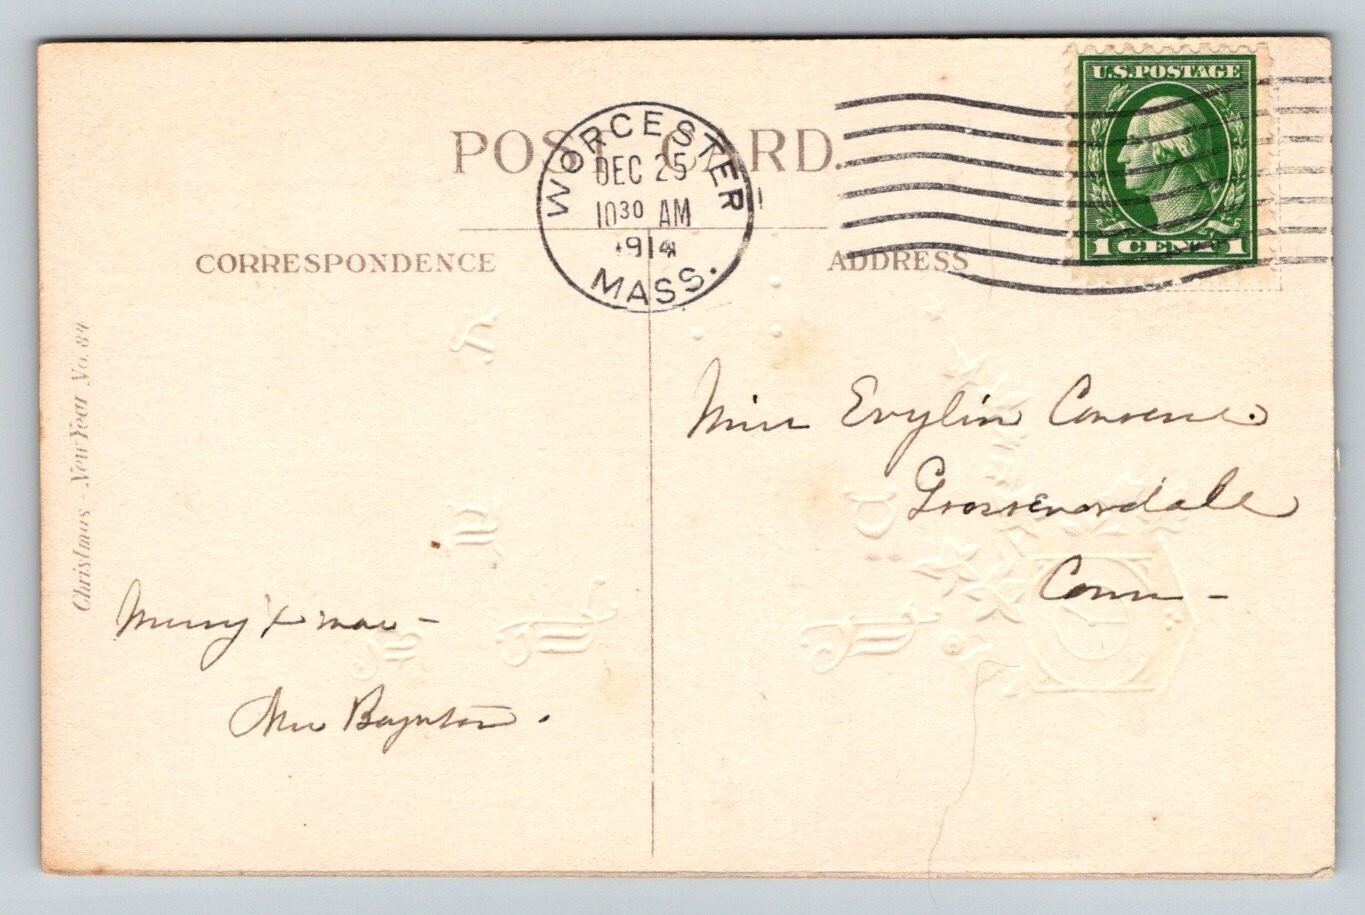 POST CARD.
WORCESTER
DEC 25
10 30 AM
1914
MASS.
U.S. POSTAGE
1 CENT 1
CORRESPONDENCE
ADDRESS
Christmas - New Year No. 84
Miss Evylin Converse.
Grosvenordale
Conn -
Merry Xmas -
Mrs Boynton.